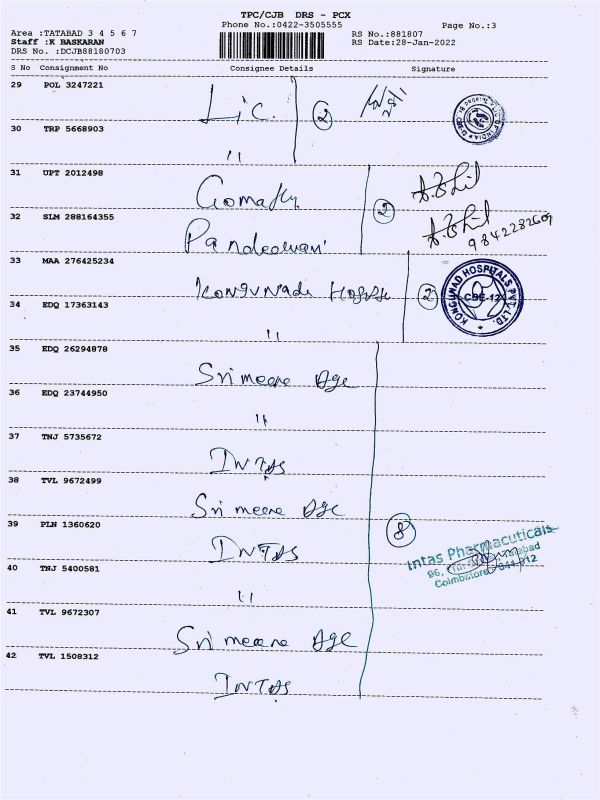 TPC/CJB DRS - PCX
Phone No.:0422-3505555
Page No.:3
Area :TATABAD 3 4 5 6 7
RS No.:881807
Staff :K BASKARAN
RS Date:28-Jan-2022
DRS No. :DCJB88180703
S No Consignment No Consignee Details Signature
29 POL 3247221
Lic. 2
30 TRP 5668903
"
31 UPT 2012498
Gomathy 2
32 SLM 288164355
9842282609
33 MAA 276425234
2
KONGUNAD HOSPITALS PVT. LTD.
CBE-12
34 EDQ 17363143
"
35 EDQ 26294878
Sri meera Age
36 EDQ 23744950
"
37 TNJ 5735672
INTAS
38 TVL 9672499
Sri meera Age
39 PLN 1360620
8
INTAS
Intas Pharmacuticals
Coimbatore
40 TNJ 5400581
"
41 TVL 9672307
Sri meera Age
42 TVL 1508312
INTAS